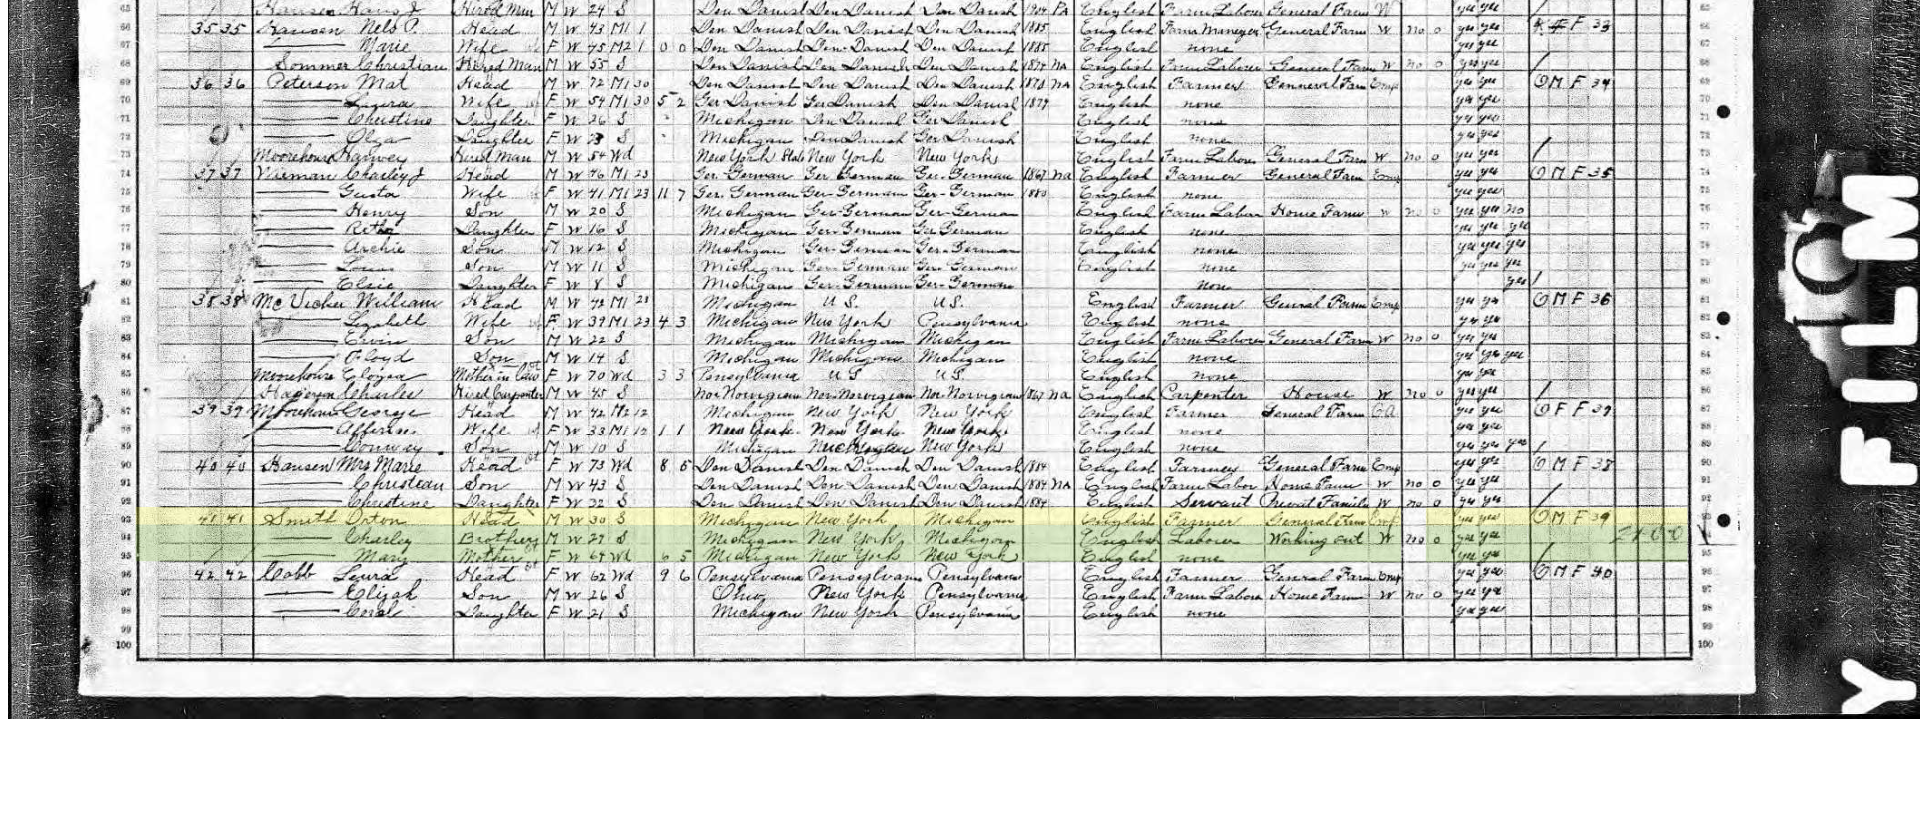 65 Hansen Hans J Hired Man M W 24 S Den Danish Den Danish Den Danish 1904 Pa English Farm Laborer General Farm W
66 35 35 Hansen Nels P. Head M W 43 M1 1 Den Danish Den Danish Den Danish 1885 English Farm Manager General Farm W no 0 yes yes F 33
67 Marie Wife F W 45 M2 1 0 0 Den Danish Den Danish Den Danish 1885 English none yes yes
68 Sommer Christian Hired Man M W 55 S Den Danish Den Danish Den Danish 1874 Na English Farm Laborer General Farm W no 0 yes yes
69 36 36 Peterson Mat Head M W 72 M1 30 Den Danish Den Danish Den Danish 1873 Na English Farmer General Farm Emp yes yes O M F 34
70 Laura Wife F W 54 M1 30 5 2 Ger Danish Ger Danish Den Danish 1879 English none yes yes
71 Christine Daughter F W 26 S Michigan Den Danish Ger Danish English none yes yes
72 Olga Daughter F W S Michigan Den Danish Ger Danish English none yes yes
73 Moorehouse Harvey Hired Man M W 54 Wd New York State New York New York English Farm Laborer General Farm W no 0 yes yes
74 37 37 Nieman Charley J Head M W 46 M1 23 Ger. German Ger German Ger-German Na English Farmer General Farm Emp yes yes O M F 35
75 Gusta Wife F W 41 M1 23 11 7 Ger. German Ger-German Ger-German 1880 English none yes yes
76 Henry Son M W 20 S Michigan Ger-German Ger-German English Farm Labor Home Farm W no 0 yes yes no
77 Daughter F W 16 S Michigan Ger-German Ger-German English none yes yes yes
78 Archie Son M W 12 S Michigan Ger-German Ger-German English none yes yes yes
79 Louis Son M W 11 S Michigan Ger-German Ger-German English none yes yes yes
80 Elsie Daughter F W 8 S Michigan Ger-German Ger-German none yes
81 38 38 Mc Vicker William Head M W M1 Michigan U S. U S. English Farmer General Farm Emp yes yes O M F 36
82 Lizabeth Wife F W 39 M1 23 4 3 Michigan New York Pensylvania English none yes yes
83 Ervin Son M W 22 S Michigan Michigan Michigan English Farm Laborer General Farm W no 0 yes yes
84 Floyd Son M W 14 S Michigan Michigan Michigan English none yes yes yes
85 Moorehouse Mother in law F W 70 Wd 3 3 Pensylvania U S U S English none yes yes
86 Charles Hired Carpenter M W 45 S Nor Norwegian Nor-Norwegian Nor-Norwegian 1867 Na English Carpenter House W no 0 yes yes
87 39 39 Moorehouse George Head M W 42 M2 12 Michigan New York New York English Farmer General Farm OA yes yes O F F 37
88 Wife F W 33 M1 12 1 1 New York New York New York English none yes yes
89 Conway Son M W 10 S Michigan Michigan New York English none yes yes yes
90 40 40 Hansen Mrs Marie Head F W 73 Wd 8 5 Den Danish Den Danish Den Danish 1884 English Farmer General Farm Emp yes yes O M F 38
91 Christian Son M W 43 S Den Danish Den Danish Den Danish 1884 NA English Farm Labor Home Farm W no 0 yes yes
92 Christine Daughter F W 32 S Den Danish Den Danish Den Danish 1884 English Servant Privit Family W no 0 yes yes
93 41 41 Smith Orton Head M W 30 S Michigan New York Michigan English Farmer General Farm yes yes O M F 39
94 Charley Brother M W 27 S Michigan New York Michigan English Laborer Working out W no 0 yes yes
95 Mary Mother F W 67 Wd 6 5 Michigan New York New York English none yes yes
96 42 42 Cobb Laura Head F W 62 Wd 9 6 Pensylvania Pensylvania Pensylvania English Farmer General Farm Emp yes yes O M F 40
97 Elijah Son M W 26 S Ohio New York Pensylvania English Farm Labor Home Farm W no 0 yes yes
98 Daughter F W 21 S Michigan New York Pensylvania English none yes yes
99
100 100
Y FILM